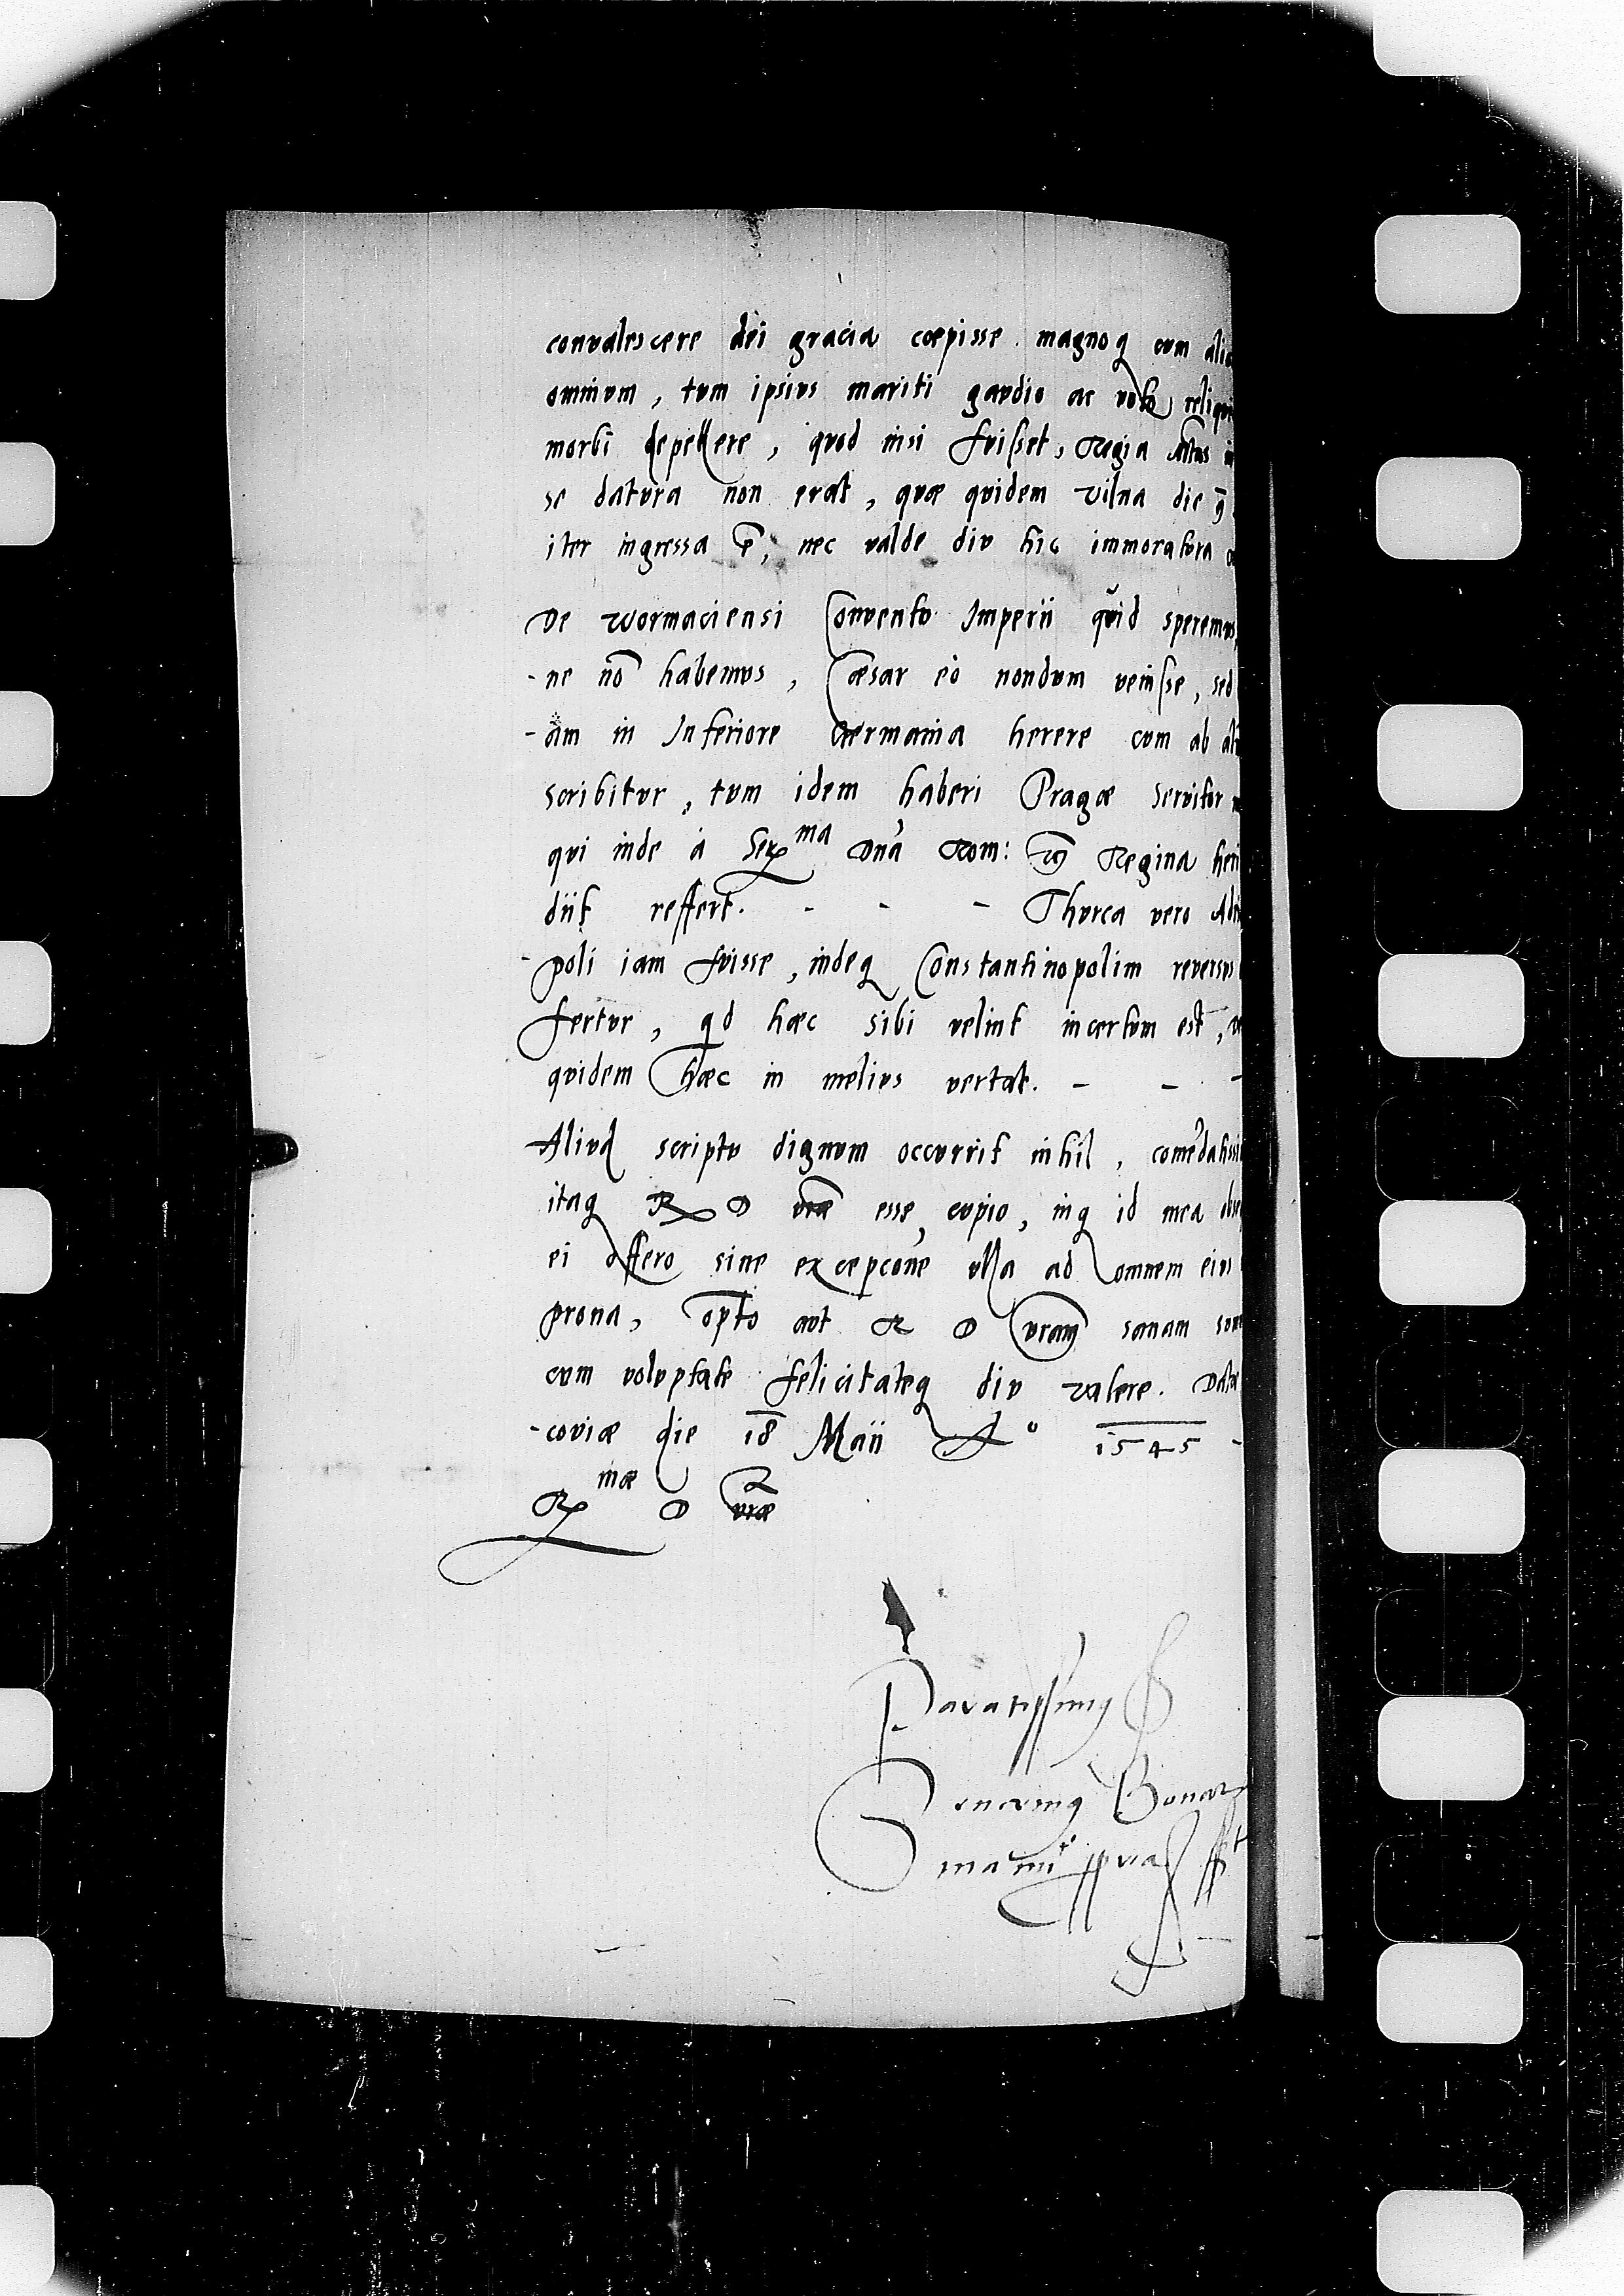 convalescere dei gracia cœpisse magnoq cum alio
omnium, tum ipsius mariti gaudio ac voto reliqui
morbi depellere, quod nisi fuisset, Regia Mtas in
se datura non erat, quæ quidem Vilna die 9
iter ingressa ē, nec valde diu hic immoratura
De Wormaciensi Conventu Imperii quid speremus
-ne nō habemus, Cæsar eo nondum venisse, sed
-am in Inferiore Germania herere cum ab ali
scribitur, tum idem haberi Pragæ servitor
qui inde a Serma Dna Rom: Regina heri
diit reffert. - - - Thurca vero Adri
-poli iam fuisse, indeq Constantinopolim reversus
fertur, qd hæc sibi velint incertum est,
quidem hæc in melius vertat. - - -
Aliud scriptu dignum occurrit nihil, comēdatissi
itaq R D vræ esse cupio, inq id mea obse
ei offero sine excepcōne ulla ad omnem eius
prona, opto aut R D vram sanam
cum voluptate felicitateq diu valere. Datæ
-coviæ die 18 Maii Ao 1545 -
Rmæ D vræ
Paratissimus
Severinus Bonar
manu ppria sst